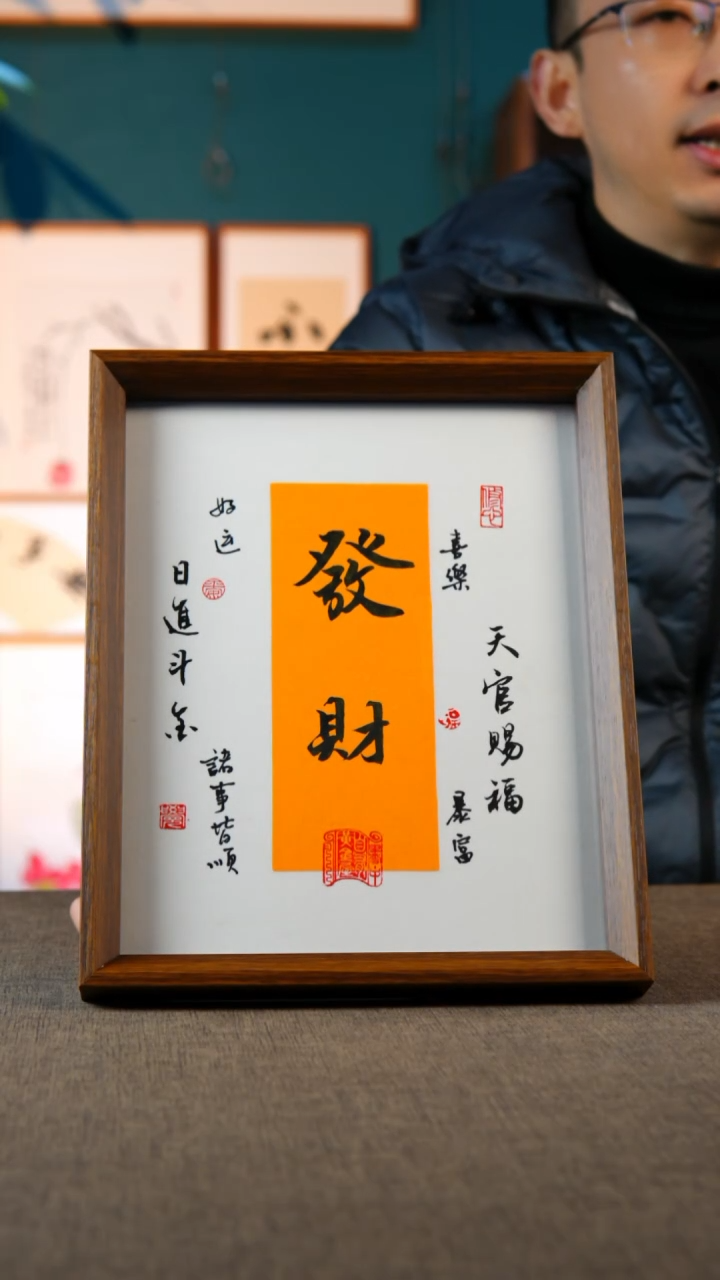 發財
喜樂
天官賜福
暴富
好运
日進斗金
諸事皆順
小